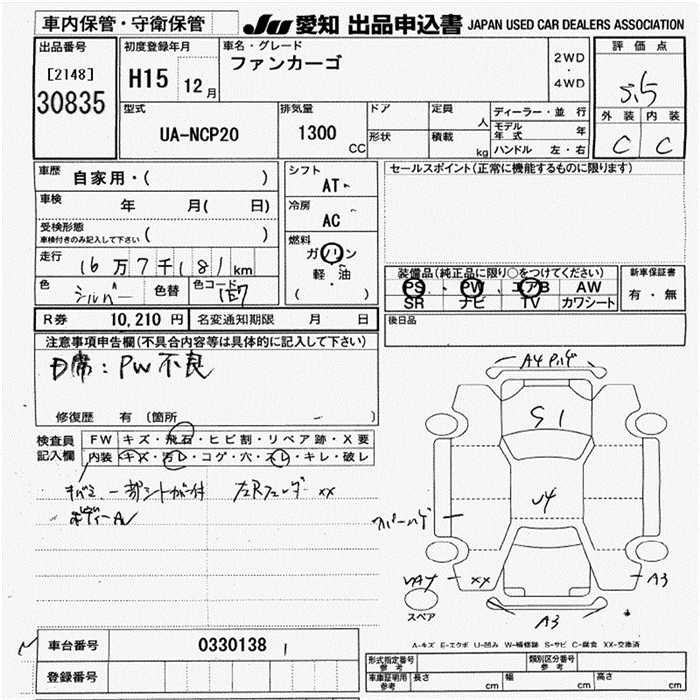 車内保管・守衛保管
JU 愛知 出品申込書 JAPAN USED CAR DEALERS ASSOCIATION
出品番号
[2148]
30835
初度登録年月
H15 12月
車名・グレード
ファンカーゴ
2WD
・
4WD
評価点
3.5
外装 内装
C C
型式
UA-NCP20
排気量
1300
CC
ドア
形状
定員
人
積載
kg
ディーラー・並行
モデル年式 年
ハンドル 左・右
車歴
自家用・( )
車検 年 月( 日)
受検形態
車検付きのみ記入して下さい ( )
走行 16万7千181km
色 シルバー 色替 色コード 1E7
シフト
AT
冷房
AC
燃料
ガソリン
軽・油
( )
セールスポイント(正常に機能するものに限ります)
装備品(純正品に限り○をつけてください)
PS PW エアB AW
SR ナビ TV カワシート
新車保証書
有・無
R券 10,210 円 名変通知期限 月 日
後日品
注意事項申告欄(不具合内容等は具体的に記入して下さい)
D席:PW不良
修復歴 有 (箇所 )
検査員
記入欄
FW キズ・飛石・ヒビ割・リペア跡・X要
内装 キズ・汚レ・コゲ・穴・スレ・キレ・破レ
XX
A4
S1
U4
XX
A3
A3
スペア
A-キズ E-エクボ U-凹み W-補修跡 S-サビ C-腐食 XX-交換済
車台番号 0330138
登録番号
形式指定番号
参考
類別区分番号
参考
車庫証明用
参考
長さ cm 幅 cm 高さ cm